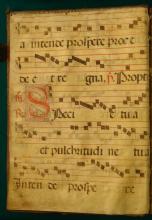 a intende prospere proce
de et regna. V. Propt
Speci e tua
et pulchritudi ne tua
inten de prospe re